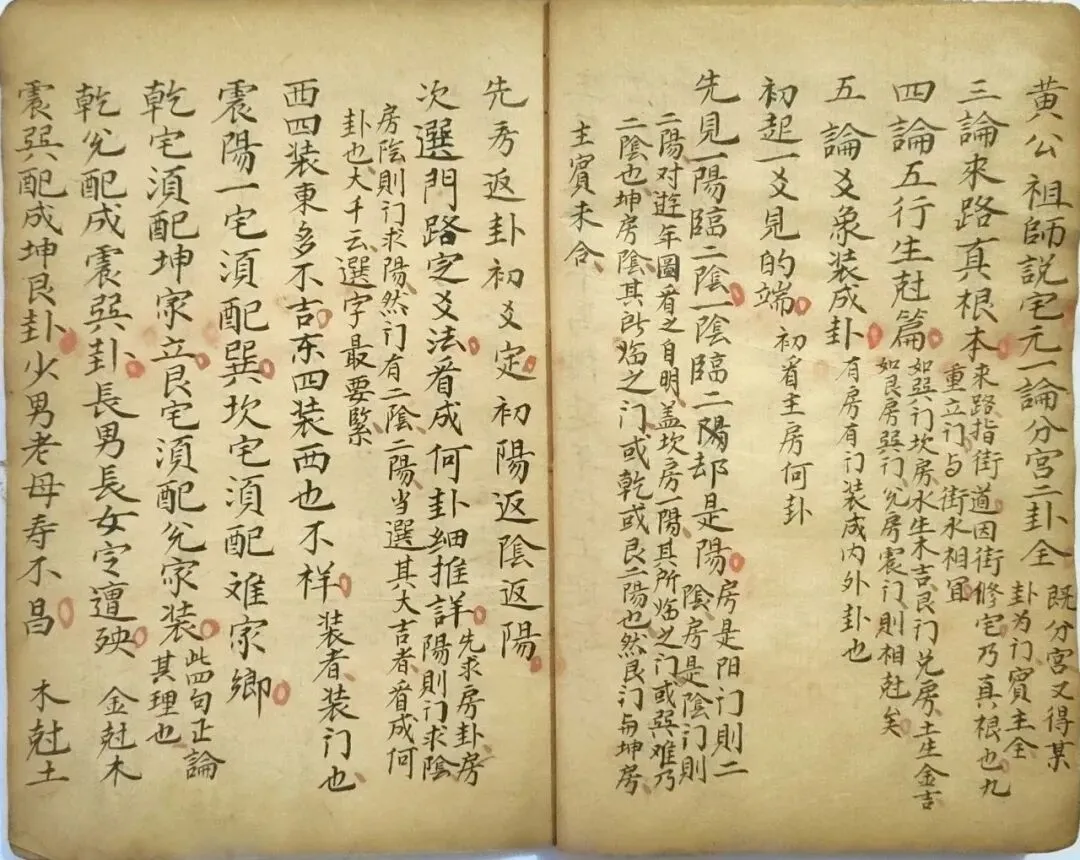 黄公祖師説宅元一論分宮二卦全 既分宮又得某
卦为门賓主全
三論來路真根本 來路指街道因街修宅乃真根也九
重立门与街水相冝
四論五行生尅篇 如巽门坎房水生木吉艮门兑房土生金吉
如艮房巽门兑房震门則相尅矣
五論爻象装成卦 有房有门装成内外卦也
初起一爻見的端 初看主房何卦
先見一陽臨二陰一陰臨二陽却是陽 房是阳门則二
陰房是陰门則
二陽对遊年圖看之自明盖坎房一陽其所临之门或巽难乃
二陰也坤房陰其所临之门或乾或艮二陽也然艮门与坤房
主賓未合
先秀返卦初爻定初陽返陰返陽
次選門路定爻法看成何卦细推詳 先求房卦房
陽則门求陰
房陰則门求陽然门有二陰二陽当選其大吉者看成何
卦也大千云選字最要緊
西四装東多不吉东四装西也不祥 装者装门也
震陽一宅湏配巽坎宅湏配难家鄉
乾宅湏配坤家立艮宅湏配兑家装 此四句正論
其理也
乾兑配成震巽卦長男長女定遭殃 金尅木
震巽配成坤艮卦少男老母寿不昌 木尅土